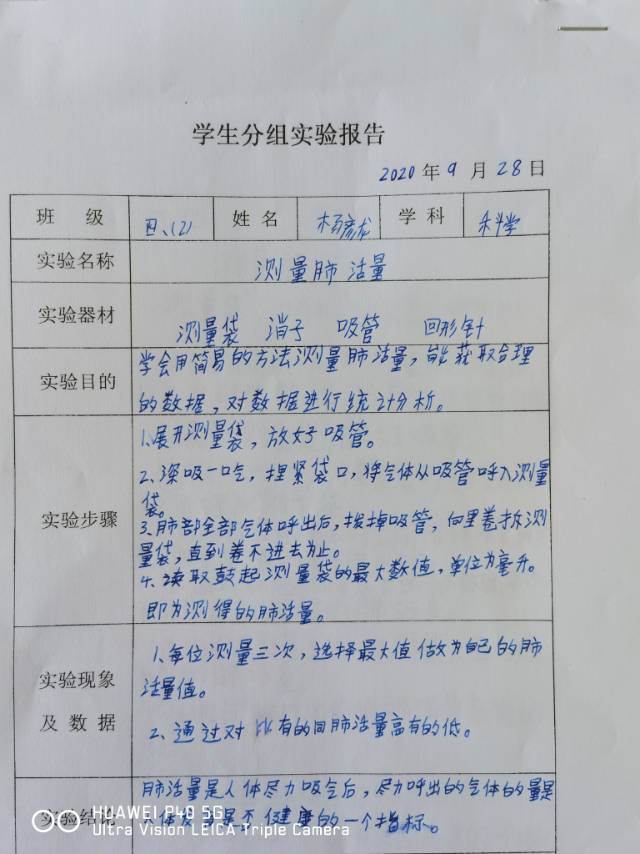 学生分组实验报告
2020年9月28日
班 级 四、(2) 姓 名 杨彦龙 学 科 科学
实验名称 测量肺活量
实验器材 测量袋 消子 吸管 回形针
实验目的 学会用简易的方法测量肺活量，能获取合理
的数据，对数据进行统计分析。
实验步骤 1.展开测量袋，放好吸管。
2、深吸一口气，捏紧袋口，将气体从吸管呼入测量
袋。
3.肺部全部气体呼出后，拔掉吸管，向里卷折测
量袋，直到卷不进去为止。
4.读取鼓起测量袋的最大数值，单位为毫升。
即为测得的肺活量。
实验现象
及 数 据 1、每位测量三次，选择最大值做为自己的肺
活量值。
2、通过对比有的同肺活量高有的低。
实验结论 肺活量是人体尽力吸气后，尽力呼出的气体的量是
人体发育是否健康的一个指标。
HUAWEI P40 5G
Ultra Vision LEICA Triple Camera